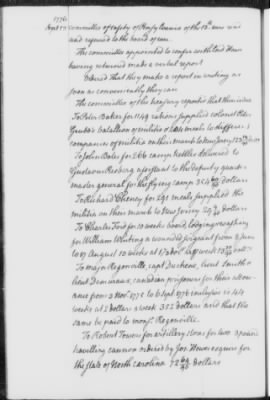 1776
Sept 17
committee of safety of Pensylvania of the 13th inst was
read & referred to the board of war
The committee appointed to confer with
having returned made a verbal report
Ordered That they make a report in writing as
soon as conveniently they can
The committee of the treasury reported that there is due
To Peter Baker for 1149 rations supplied colonel Peter
Grubb's battalion of militia & 1244 meals to different
companies of militia on their march to New Jersey
To John Baker for 266 camp kettles delivered to
Gustavus Risberg assistant to the deputy quarter
master general for the flying camp 354 60/90 dollars
To Richard Cheney for 291 meals supplied the
militia on their march to New Jersey dollars
To Charles Fort for 10 weeks board, lodging & washing
for William Whiting a wounded sergeant from
to 17 august 10 weeks at
To major Regonville, capt Duchene,
& lieut Damusau, canadian prisoners on their allow-
ance from 2 Novr 1775 to 6 sept 1776 inclusive is 44
weeks at 2 dollars a week 352 dollars and that the
same be paid to monsr. Regonville.
To Robert Towers for artillery stores for two 3 pound
travelling cannon ordered by Jos: Hewes esquire for
the state of North carolina 72 dollars